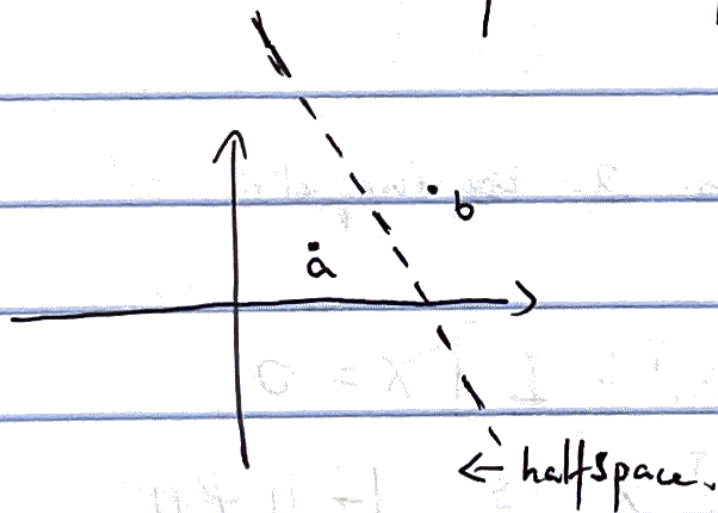 b
a
← halfspace.